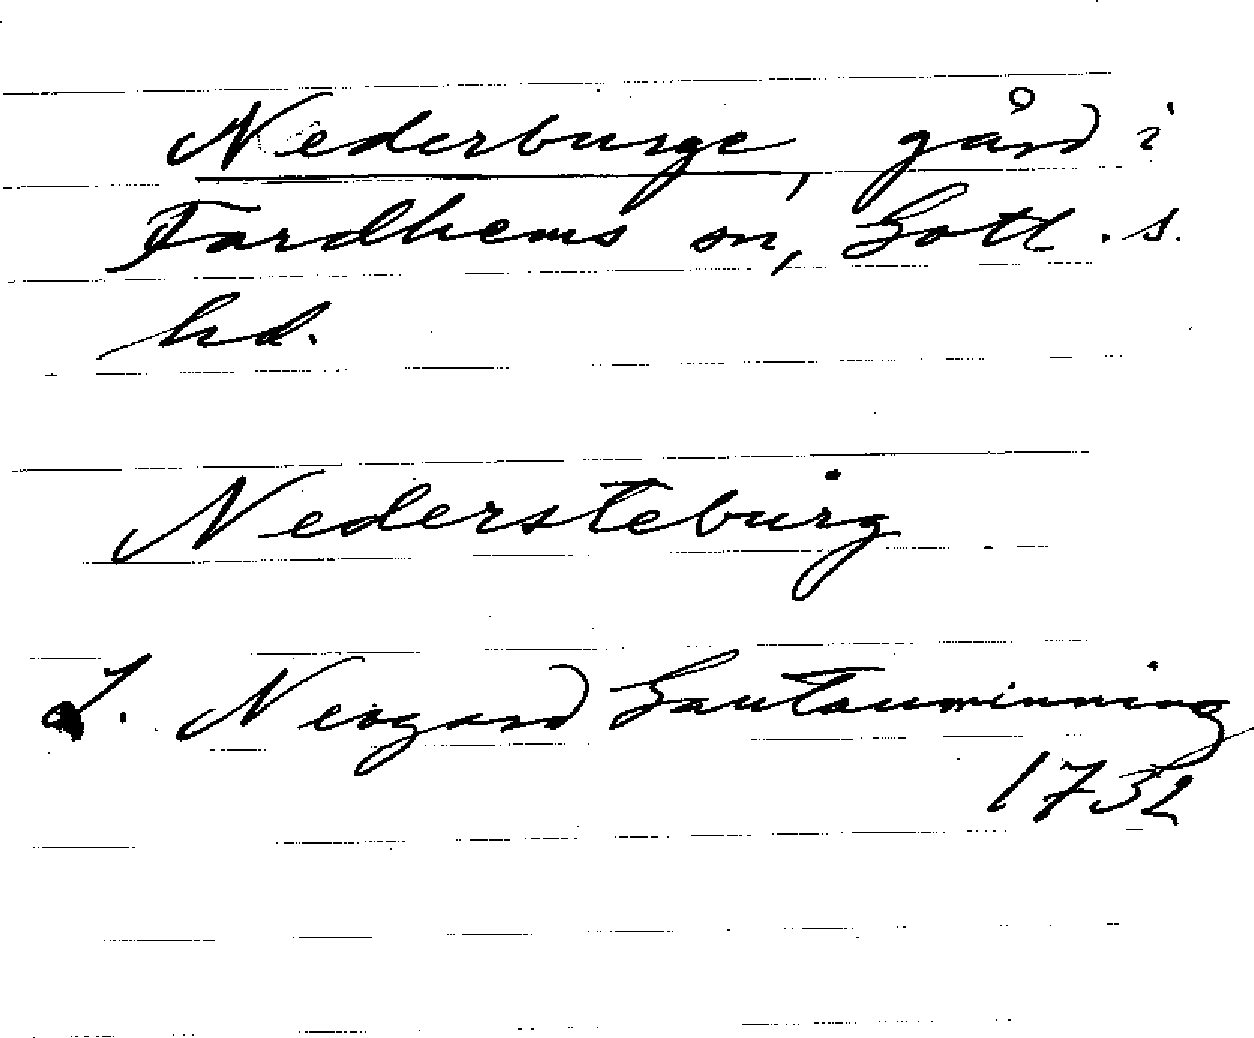 Nederburge, gård i
Fardhems sn, Gotl. s.
hd.
Nedersteburg
L. Neogard Gautauminning
1732